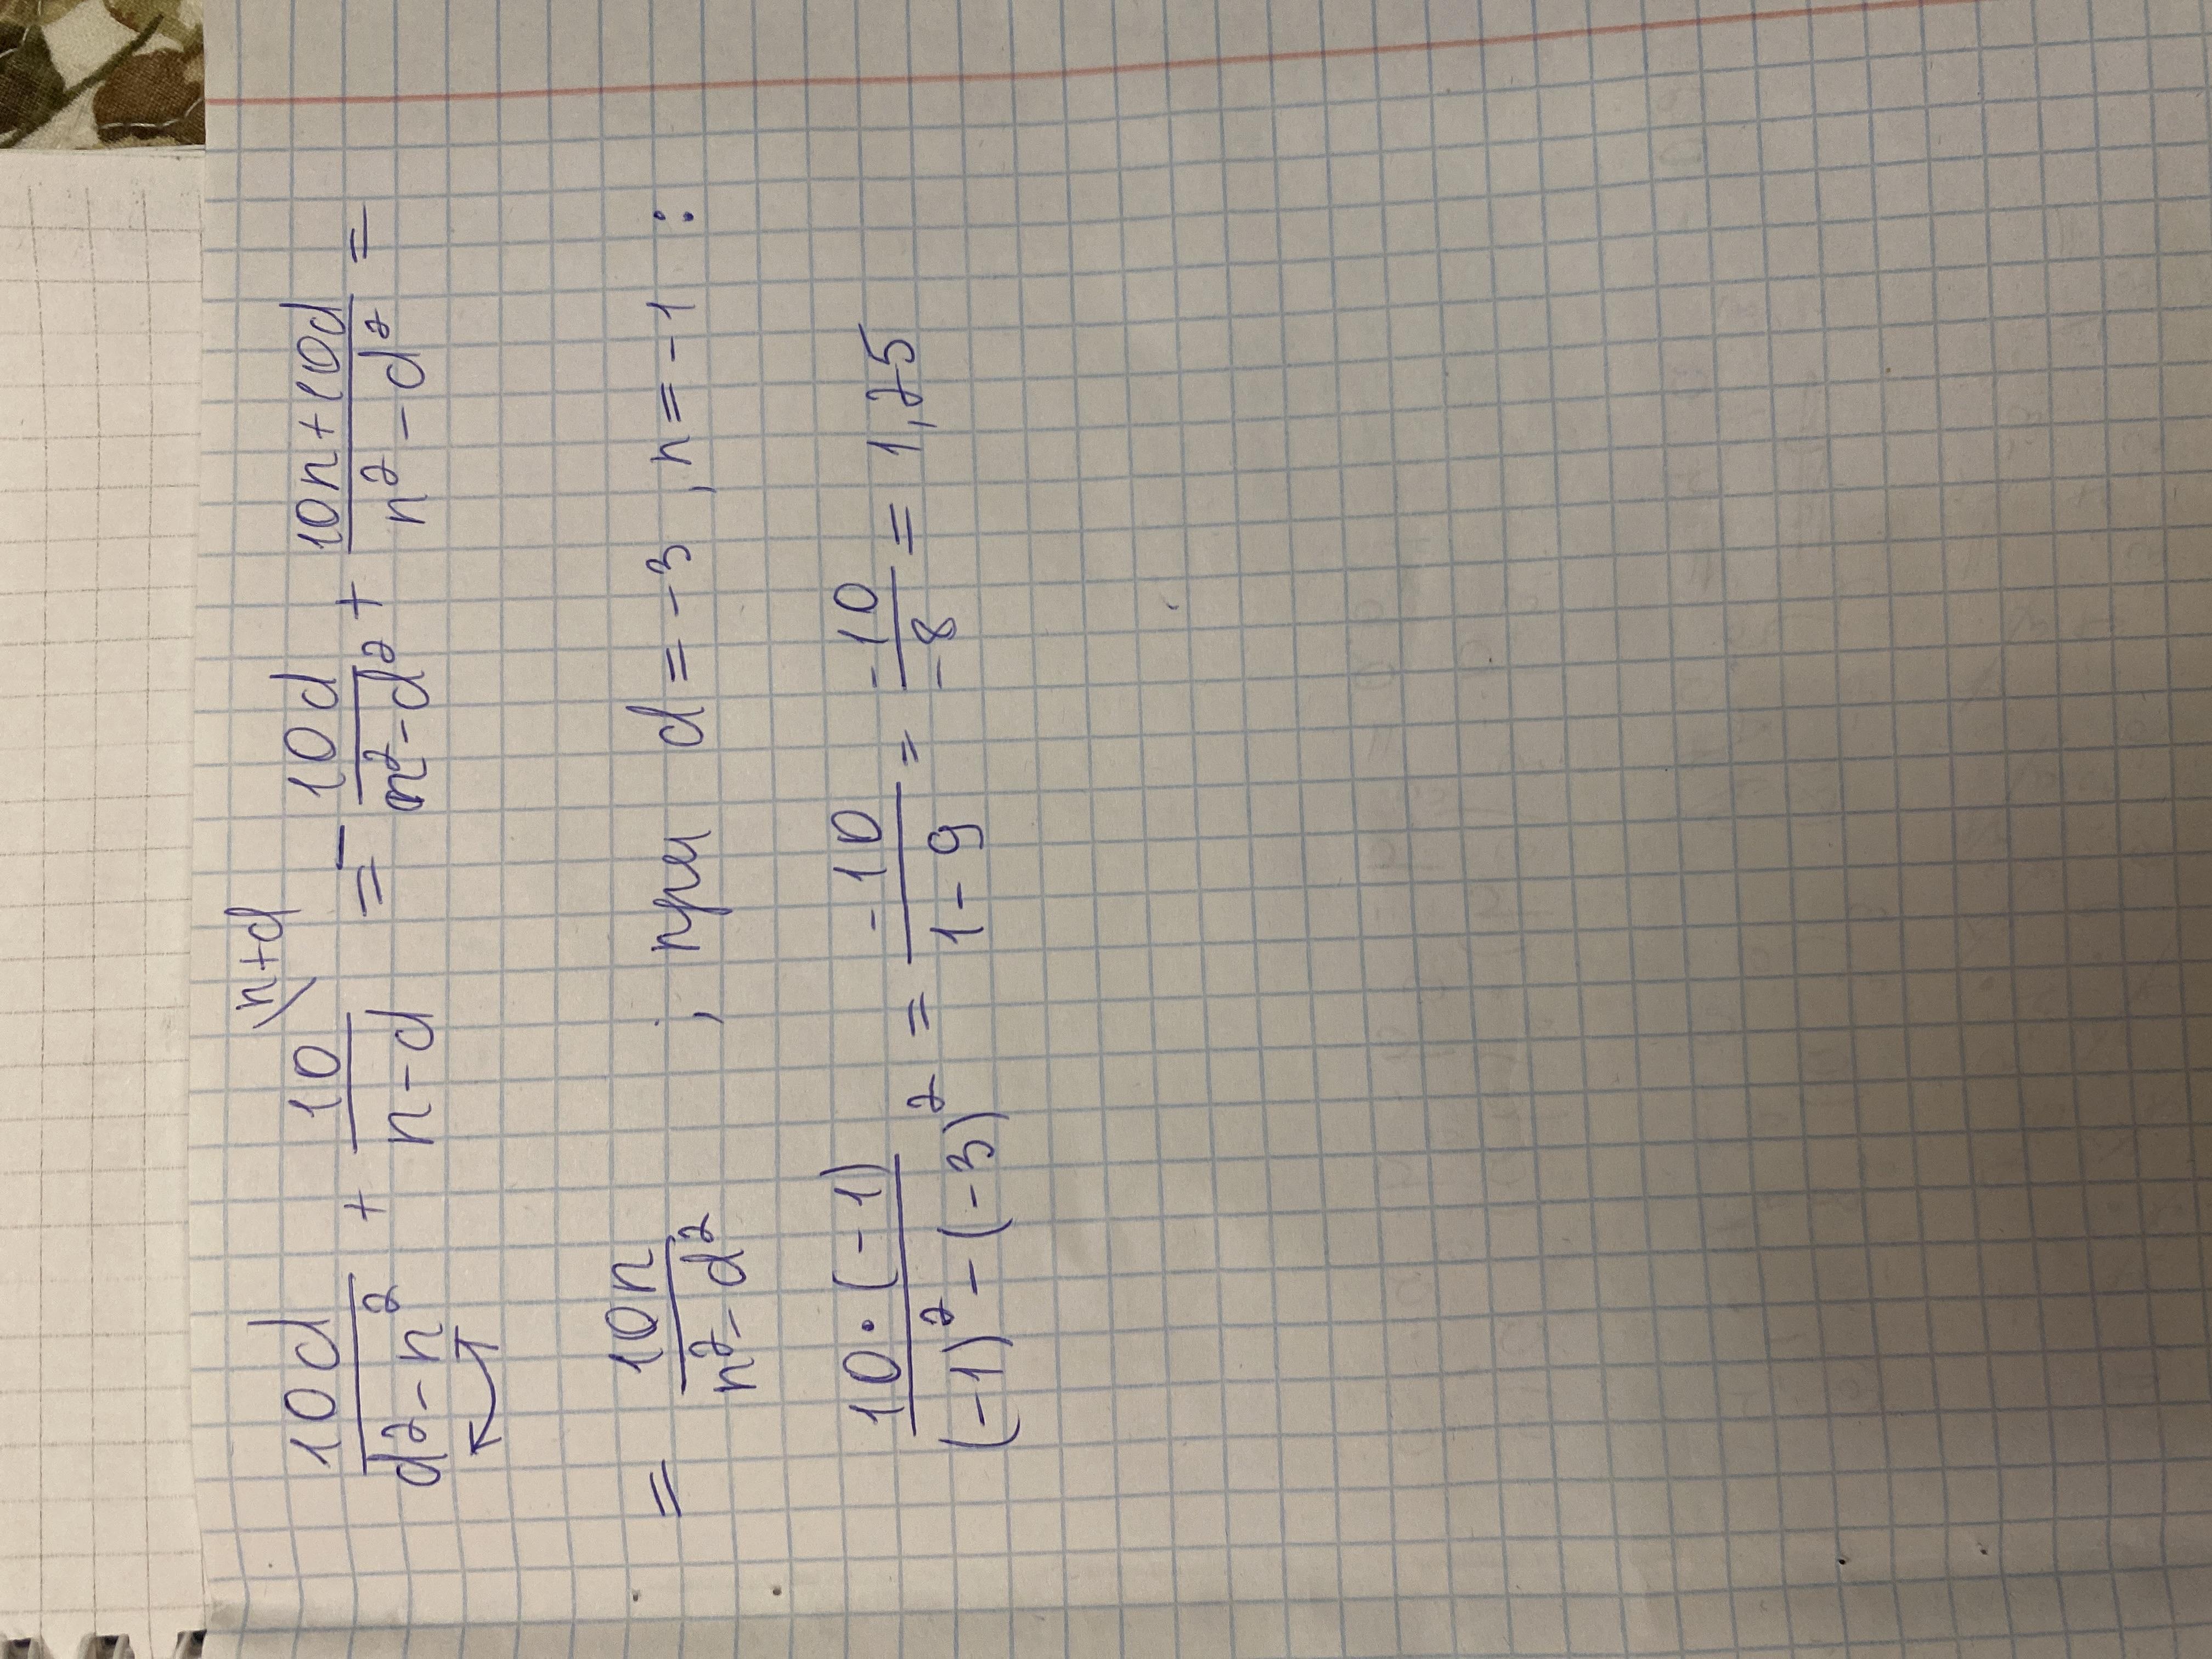 10d/(d² - n²) + 10/(n - d) \n+d = - 10d/(n² - d²) + (10n + 10d)/(n² - d²) =
= 10n/(n² - d²) ; при d = -3, n = -1 :
10·(-1)/((-1)² - (-3)²) = -10/(1 - 9) = -10/-8 = 1,25